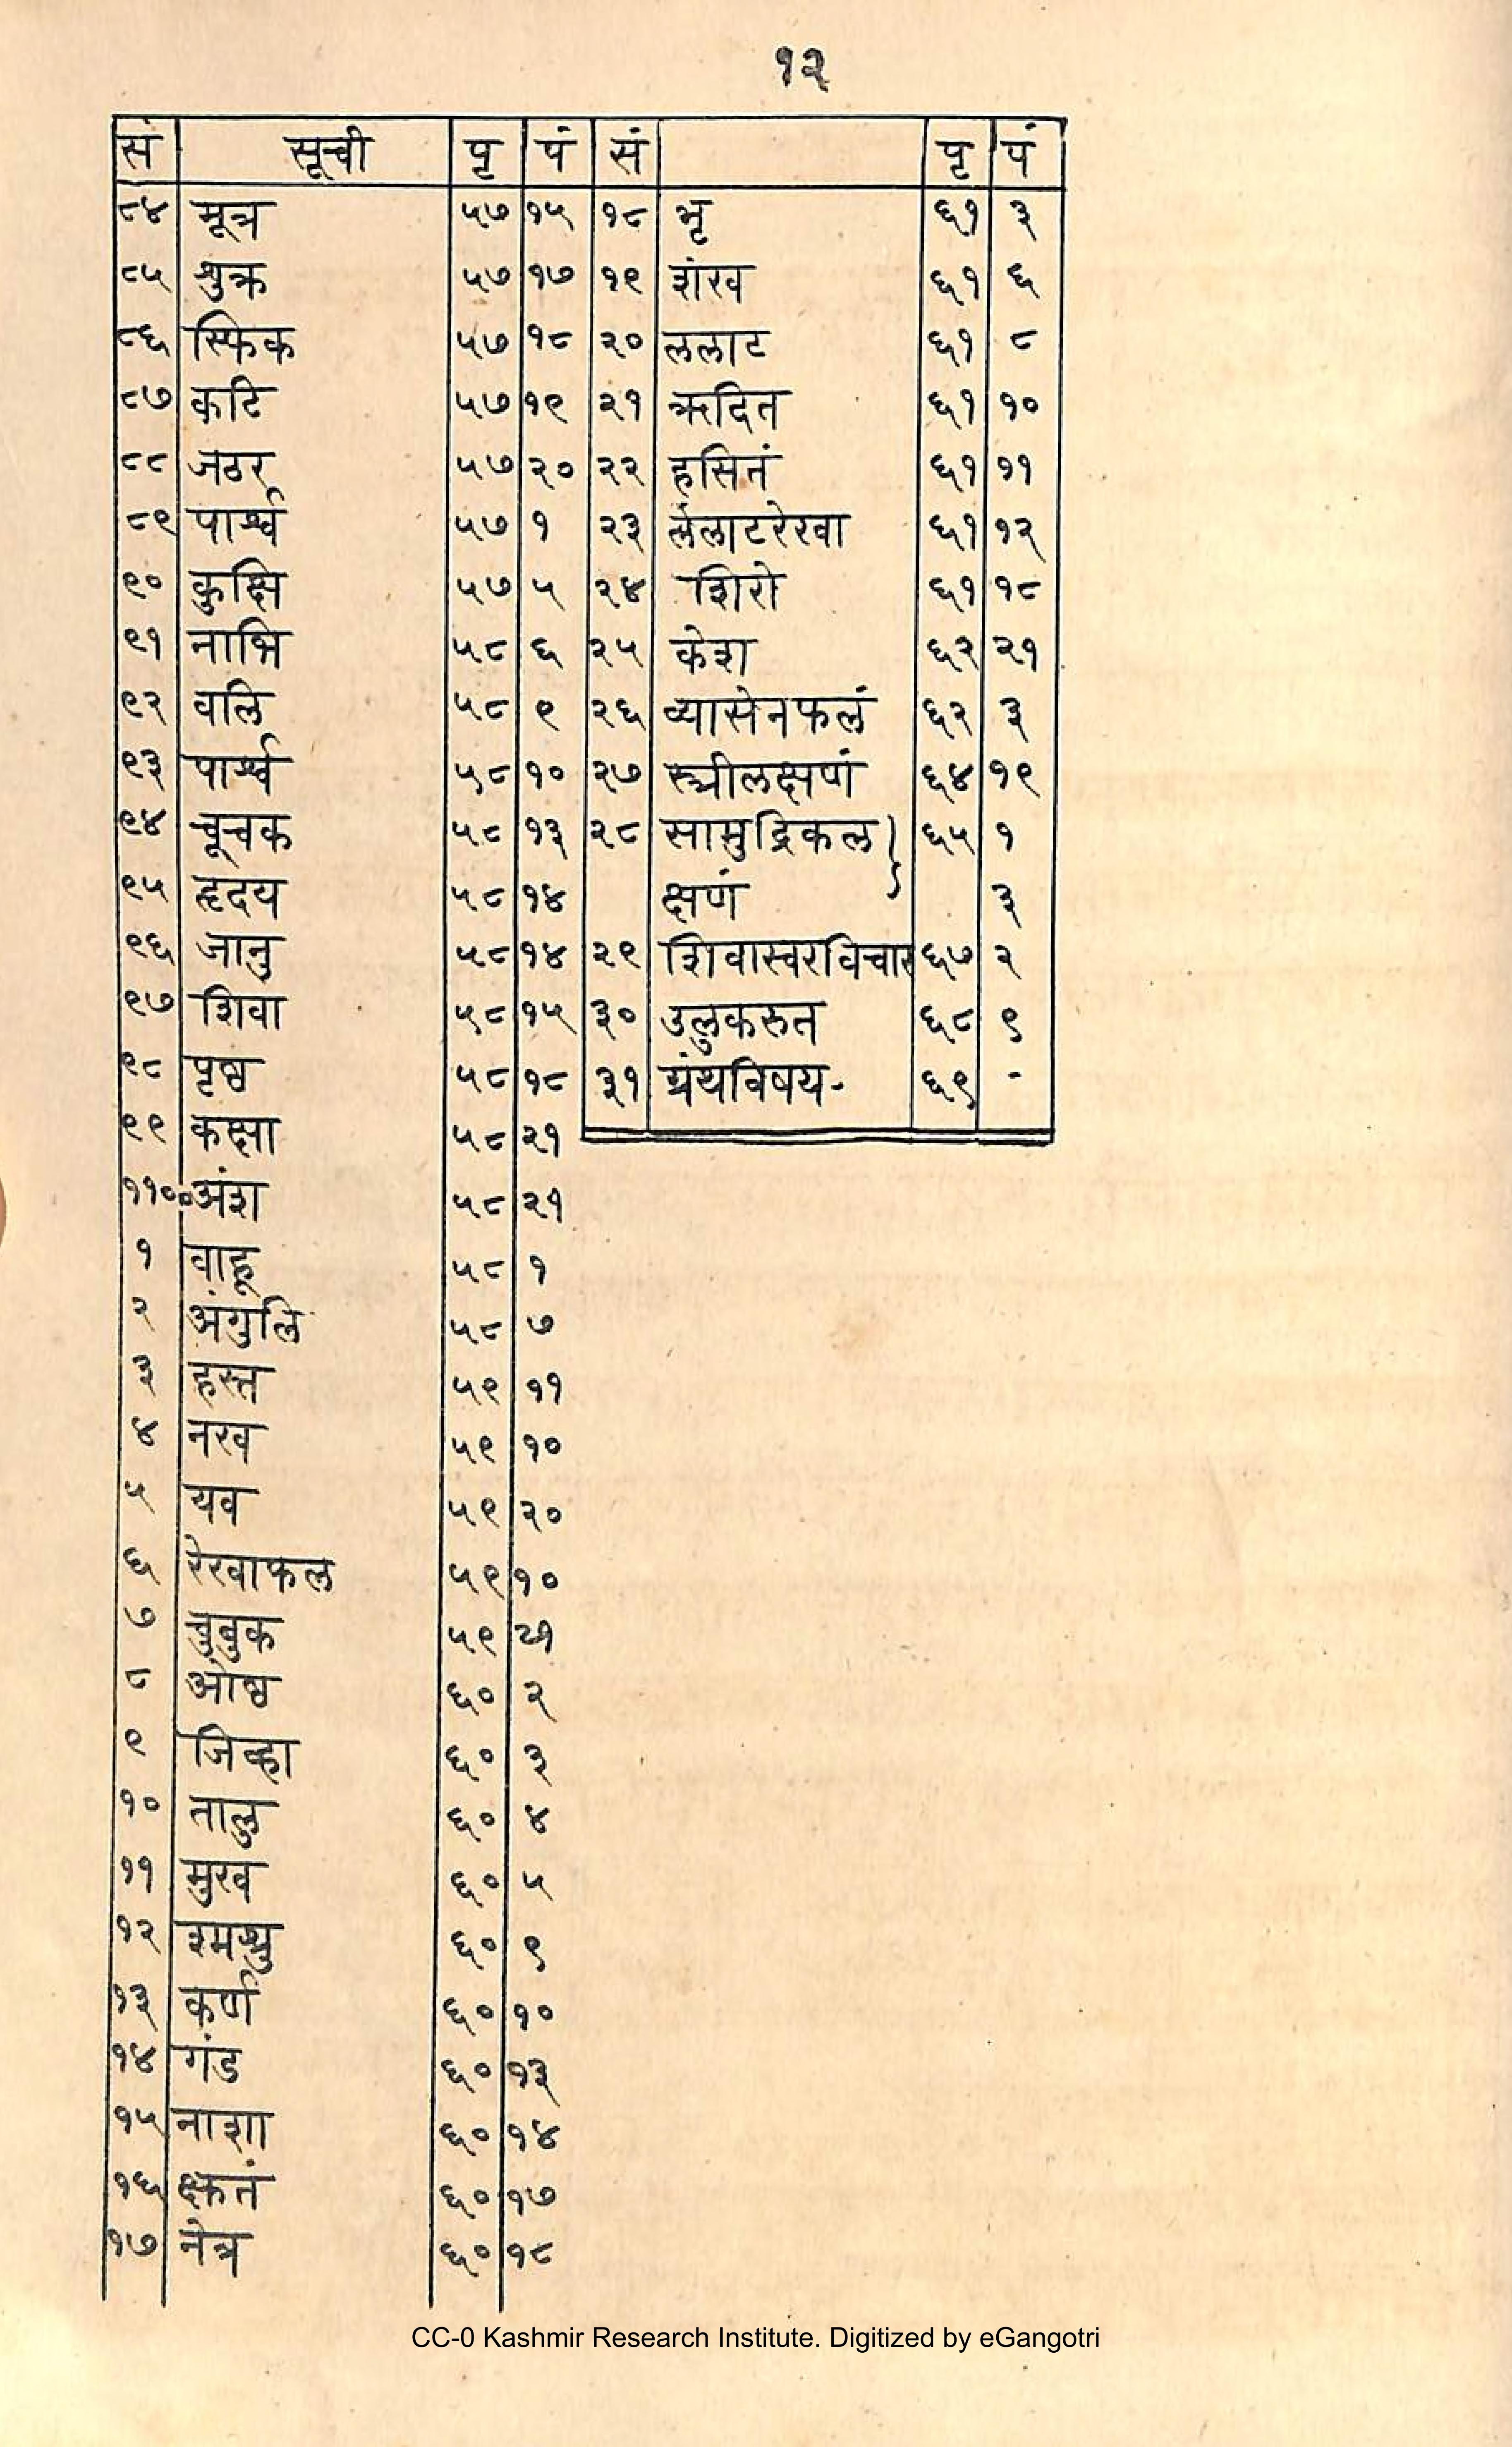 १२
सं सूची पृ पं
८४ मूत्र ५७ १५
८५ शुक्र ५७ १७
८६ स्फिक ५७ १८
८७ कटि ५७ १९
८८ जठर ५७ २०
८९ पार्श्व ५७ १
९० कुक्षि ५७ ५
९१ नाभि ५८ ६
९२ वलि ५८ ९
९३ पार्श्व ५८ १०
९४ चूचक ५८ १३
९५ हृदय ५८ १४
९६ जानु ५८ १४
९७ शिवा ५८ १५
९८ पृष्ठ ५८ १८
९९ कक्षा ५८ २१
११०० अंश ५८ २१
१ वाहू ५८ १
२ अंगुलि ५८ ७
३ हस्त ५९ ११
४ नख ५९ १०
५ यव ५९ २०
६ रेखाफल ५९ १०
७ चुबुक ५९ २१
८ ओष्ठ ६० २
९ जिव्हा ६० ३
१० तालु ६० ४
११ मुख ६० ५
१२ श्मश्रु ६० ९
१३ कर्ण ६० १०
१४ गंड ६० १३
१५ नाशा ६० १४
१६ क्ष्कतं ६० १७
१७ नेत्र ६० १८
सं पृ पं
१८ भृ ६१ ३
१९ शंख ६१ ६
२० ललाट ६१ ८
२१ ऋदित ६१ १०
२२ हसितं ६१ ११
२३ ललाटरेखा ६१ १२
२४ शिरो ६१ १८
२५ केश ६२ २१
२६ व्यासेनफलं ६२ ३
२७ स्त्रीलक्षणं ६४ १९
२८ सामुद्रिकल ६५ १
क्षणं ३
२९ शिवास्वरविचार ६७ २
३० उलुकरुत ६८ ९
३१ ग्रंथविषय- ६९ -
CC-0 Kashmir Research Institute. Digitized by eGangotri